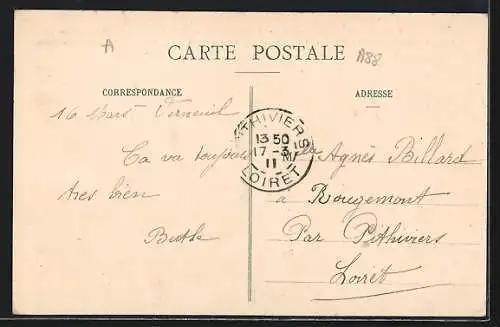 A
A88
CARTE POSTALE
CORRESPONDANCE
ADRESSE
16 Mars Verneuil
Ça va toujours
très bien
Berthe
PITHIVIERS
13 50
17 - 3
11
LOIRET
Mlle Agnès Billard
à Rougemont
Par Pithiviers
Loiret